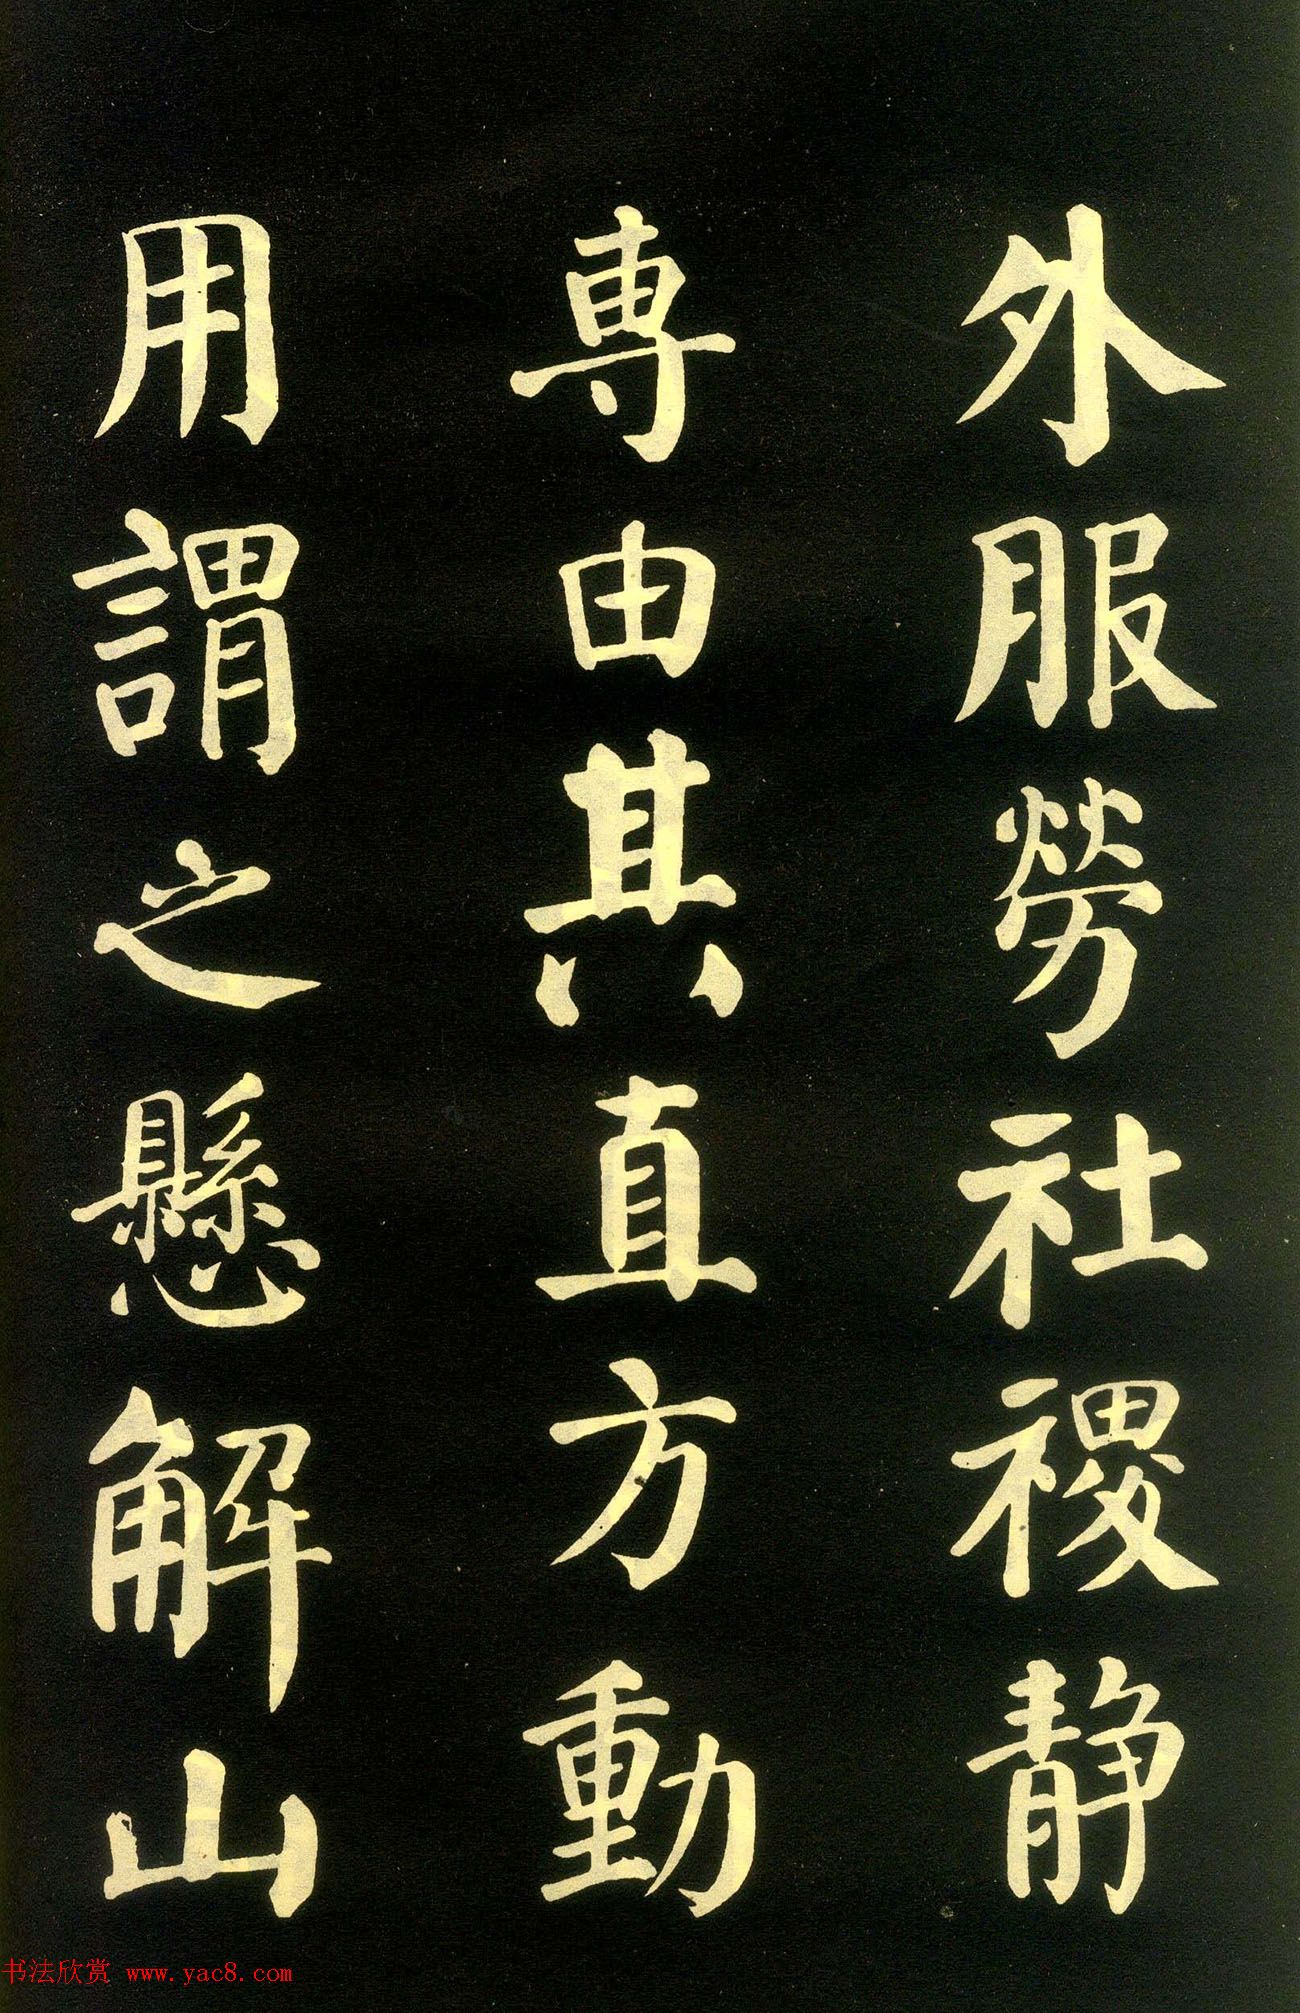 外服勞社稷静
専由其真直方動
用謂之懸解山
书法欣赏 www.yac8.com